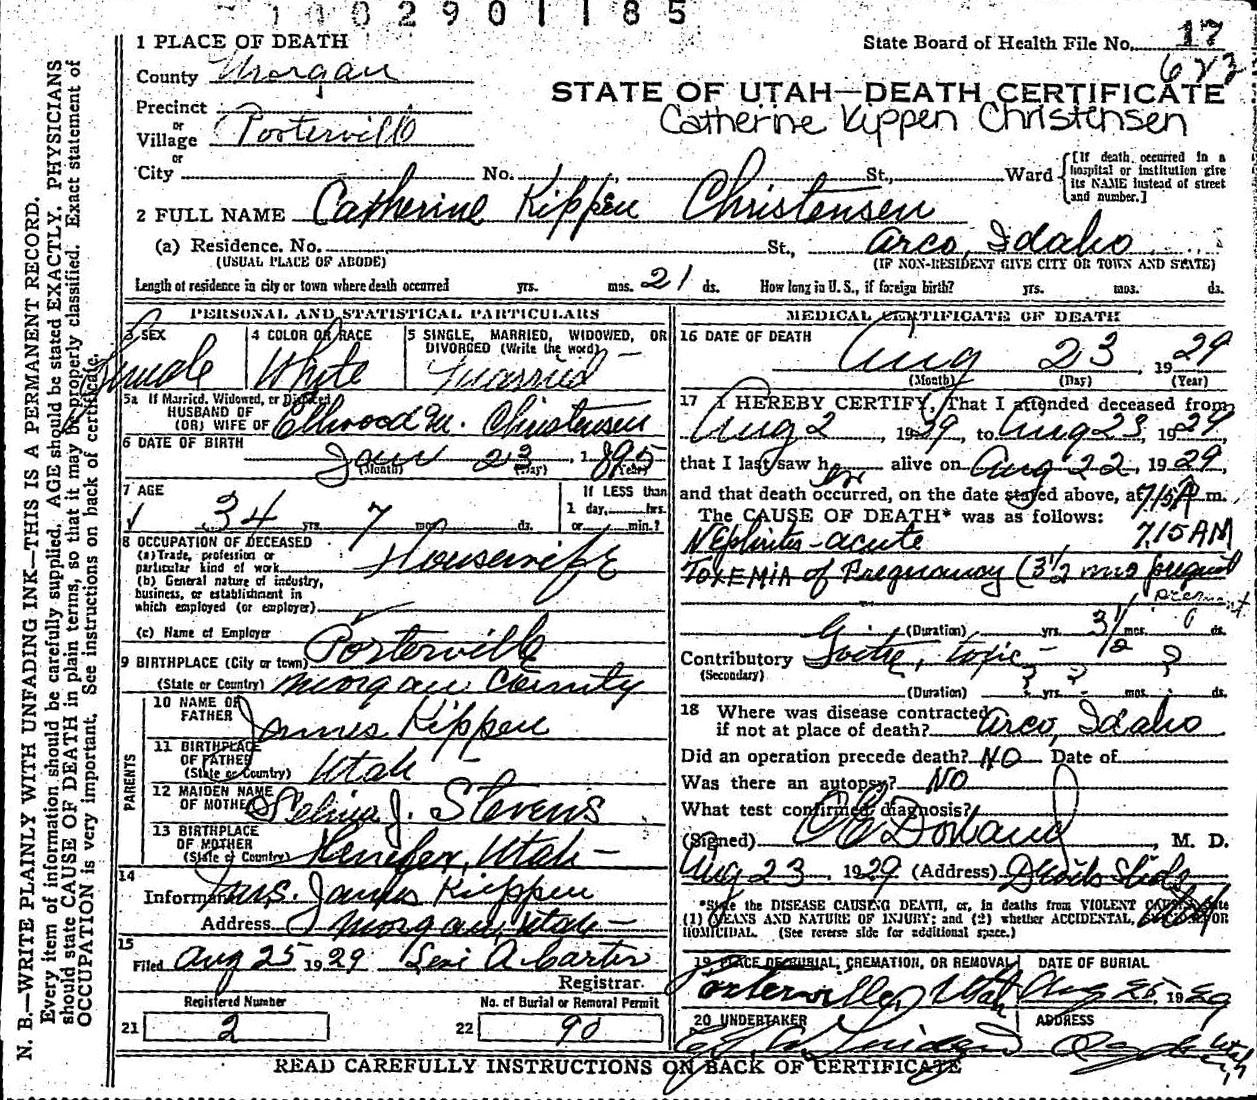 1 0 0 2 9 0 1 1 8 5
1 PLACE OF DEATH
State Board of Health File No. 17
623
County Morgan
STATE OF UTAH—DEATH CERTIFICATE
Catherine Kippen Christensen
Precinct
or
Village Porterville
or
City No. St., Ward
[If death occurred in a
hospital or institution give
its NAME instead of street
and number.]
2 FULL NAME Catherine Kippen Christensen
(a) Residence. No. St., Arco, Idaho
(USUAL PLACE OF ABODE) (IF NON-RESIDENT GIVE CITY OR TOWN AND STATE)
Length of residence in city or town where death occurred yrs. mos. 21 ds. How long in U. S., if foreign birth? yrs. mos. ds.
PERSONAL AND STATISTICAL PARTICULARS
3 SEX 4 COLOR OR RACE 5 SINGLE, MARRIED, WIDOWED, OR
DIVORCED (Write the word)
Female White Married
5a If Married, Widowed, or Divorced
HUSBAND OF
(OR) WIFE OF Ellwood M. Christensen
6 DATE OF BIRTH Jan 23, 1895
(Month) (Day) (Year)
7 AGE If LESS than
1 day, hrs.
34 yrs. 7 mos. ds. or min.?
8 OCCUPATION OF DECEASED
(a) Trade, profession or
particular kind of work Housewife
(b) General nature of industry,
business, or establishment in
which employed (or employer)
(c) Name of Employer
9 BIRTHPLACE (City or town) Porterville
(State or Country) Morgan County
PARENTS
10 NAME OF
FATHER James Kippen
11 BIRTHPLACE
OF FATHER
(State or Country) Utah
12 MAIDEN NAME
OF MOTHER Selina J. Stevens
13 BIRTHPLACE
OF MOTHER
(State or Country) Henefer, Utah
14
Informant Mrs. James Kippen
Address Morgan, Utah
15
Filed Aug 25 1929 Levi A Carter
Registrar.
Registered Number No. of Burial or Removal Permit
21 2 22 90
MEDICAL CERTIFICATE OF DEATH
16 DATE OF DEATH
Aug 23, 1929
(Month) (Day) (Year)
17 I HEREBY CERTIFY, That I attended deceased from
Aug 2, 1929, to Aug 23, 1929
that I last saw her alive on Aug 22, 1929,
and that death occurred, on the date stated above, at 7.15 A m.
The CAUSE OF DEATH* was as follows:
Nephritis-acute 7.15 AM
TOXEMIA of Pregnancy (3 1/2 mos pregnant
(Duration) yrs. 3 1/2 mos. ds.
Contributory Goitre, toxic - ?
(Secondary)
(Duration) ? yrs. ? mos. ds.
18 Where was disease contracted
if not at place of death? Arco, Idaho
Did an operation precede death? NO Date of
Was there an autopsy? NO
What test confirmed diagnosis?
(Signed) , M. D.
Aug 23, 1929 (Address) Devils Slide
*State the DISEASE CAUSING DEATH, or, in deaths from VIOLENT CAUSES, state
(1) MEANS AND NATURE OF INJURY; and (2) whether ACCIDENTAL, SUICIDAL, OR
HOMICIDAL. (See reverse side for additional space.)
19 PLACE OF BURIAL, CREMATION, OR REMOVAL DATE OF BURIAL
Porterville, Utah Aug 25, 1929
20 UNDERTAKER ADDRESS
READ CAREFULLY INSTRUCTIONS ON BACK OF CERTIFICATE
N. B.—WRITE PLAINLY WITH UNFADING INK—THIS IS A PERMANENT RECORD.
Every item of information should be carefully supplied. AGE should be stated EXACTLY. PHYSICIANS
should state CAUSE OF DEATH in plain terms, so that it may be properly classified. Exact statement of
OCCUPATION is very important. See instructions on back of certificate.